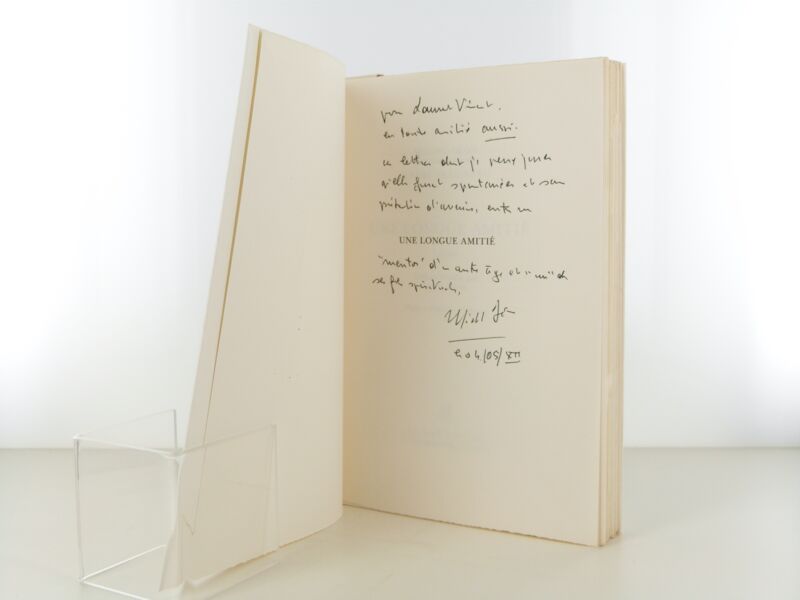 pour Laurent Vinet,
en toute amitié aussi.
ces lettres dont je peux jurer
qu'elles furent spontanées et sans
d'avenir, entre un
UNE LONGUE AMITIÉ
"mentor" d'un autre âge et "un" de
ses fils spirituels,
Michel
04/05/XII